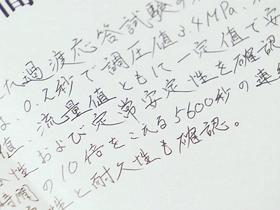 間
た過渡応答試験の
は、0.2秒で調圧値3.4MPa、
値、流量値ともに一定値で安
性および定常安定性を確認
時間の10倍をこえる5600秒の連続
性と耐久性も確認。